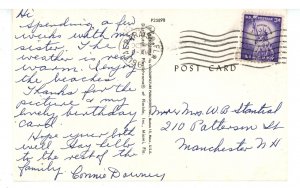 Hi
Spending a few
weeks with my
sister. The
weather is real
warm. I enjoy
the beaches
Thanks for the
picture & my
lovely birthday
card.
Hope you're both
well. Say hello
to the rest of
the family.
Connie Downey
P25898
POST CARD
Mr & Mrs. W. B. Stantial
210 Patterson St
Manchester N H